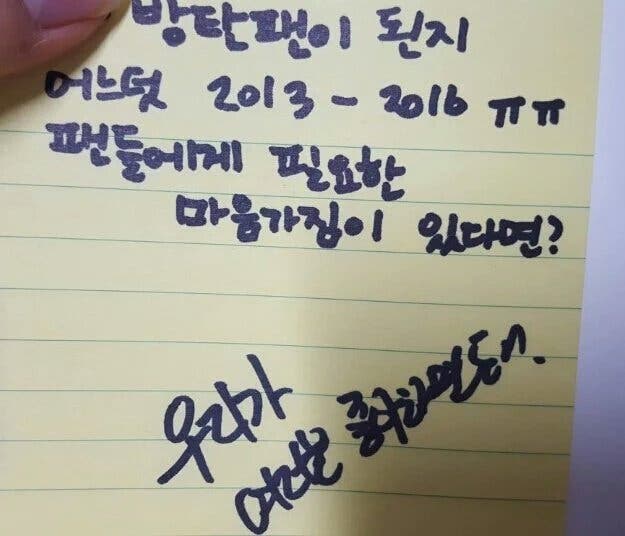 방탄팬이 된지
어느덧 2013 - 2016 ㅠㅠ
팬들에게 필요한
마음가짐이 있다면?
우리가
여러분 좋아하면 돼^^.